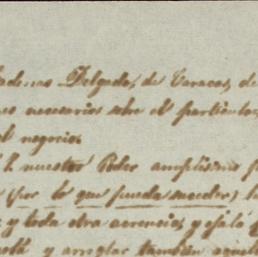 Delgado, de Caracas, de
necesarios sobre el particular,
el negocio.
nuestro Poder amplísimo p
(por lo que pueda suceder) l
y toda otra acreencia, y ojalá
y arreglar tambien aquel